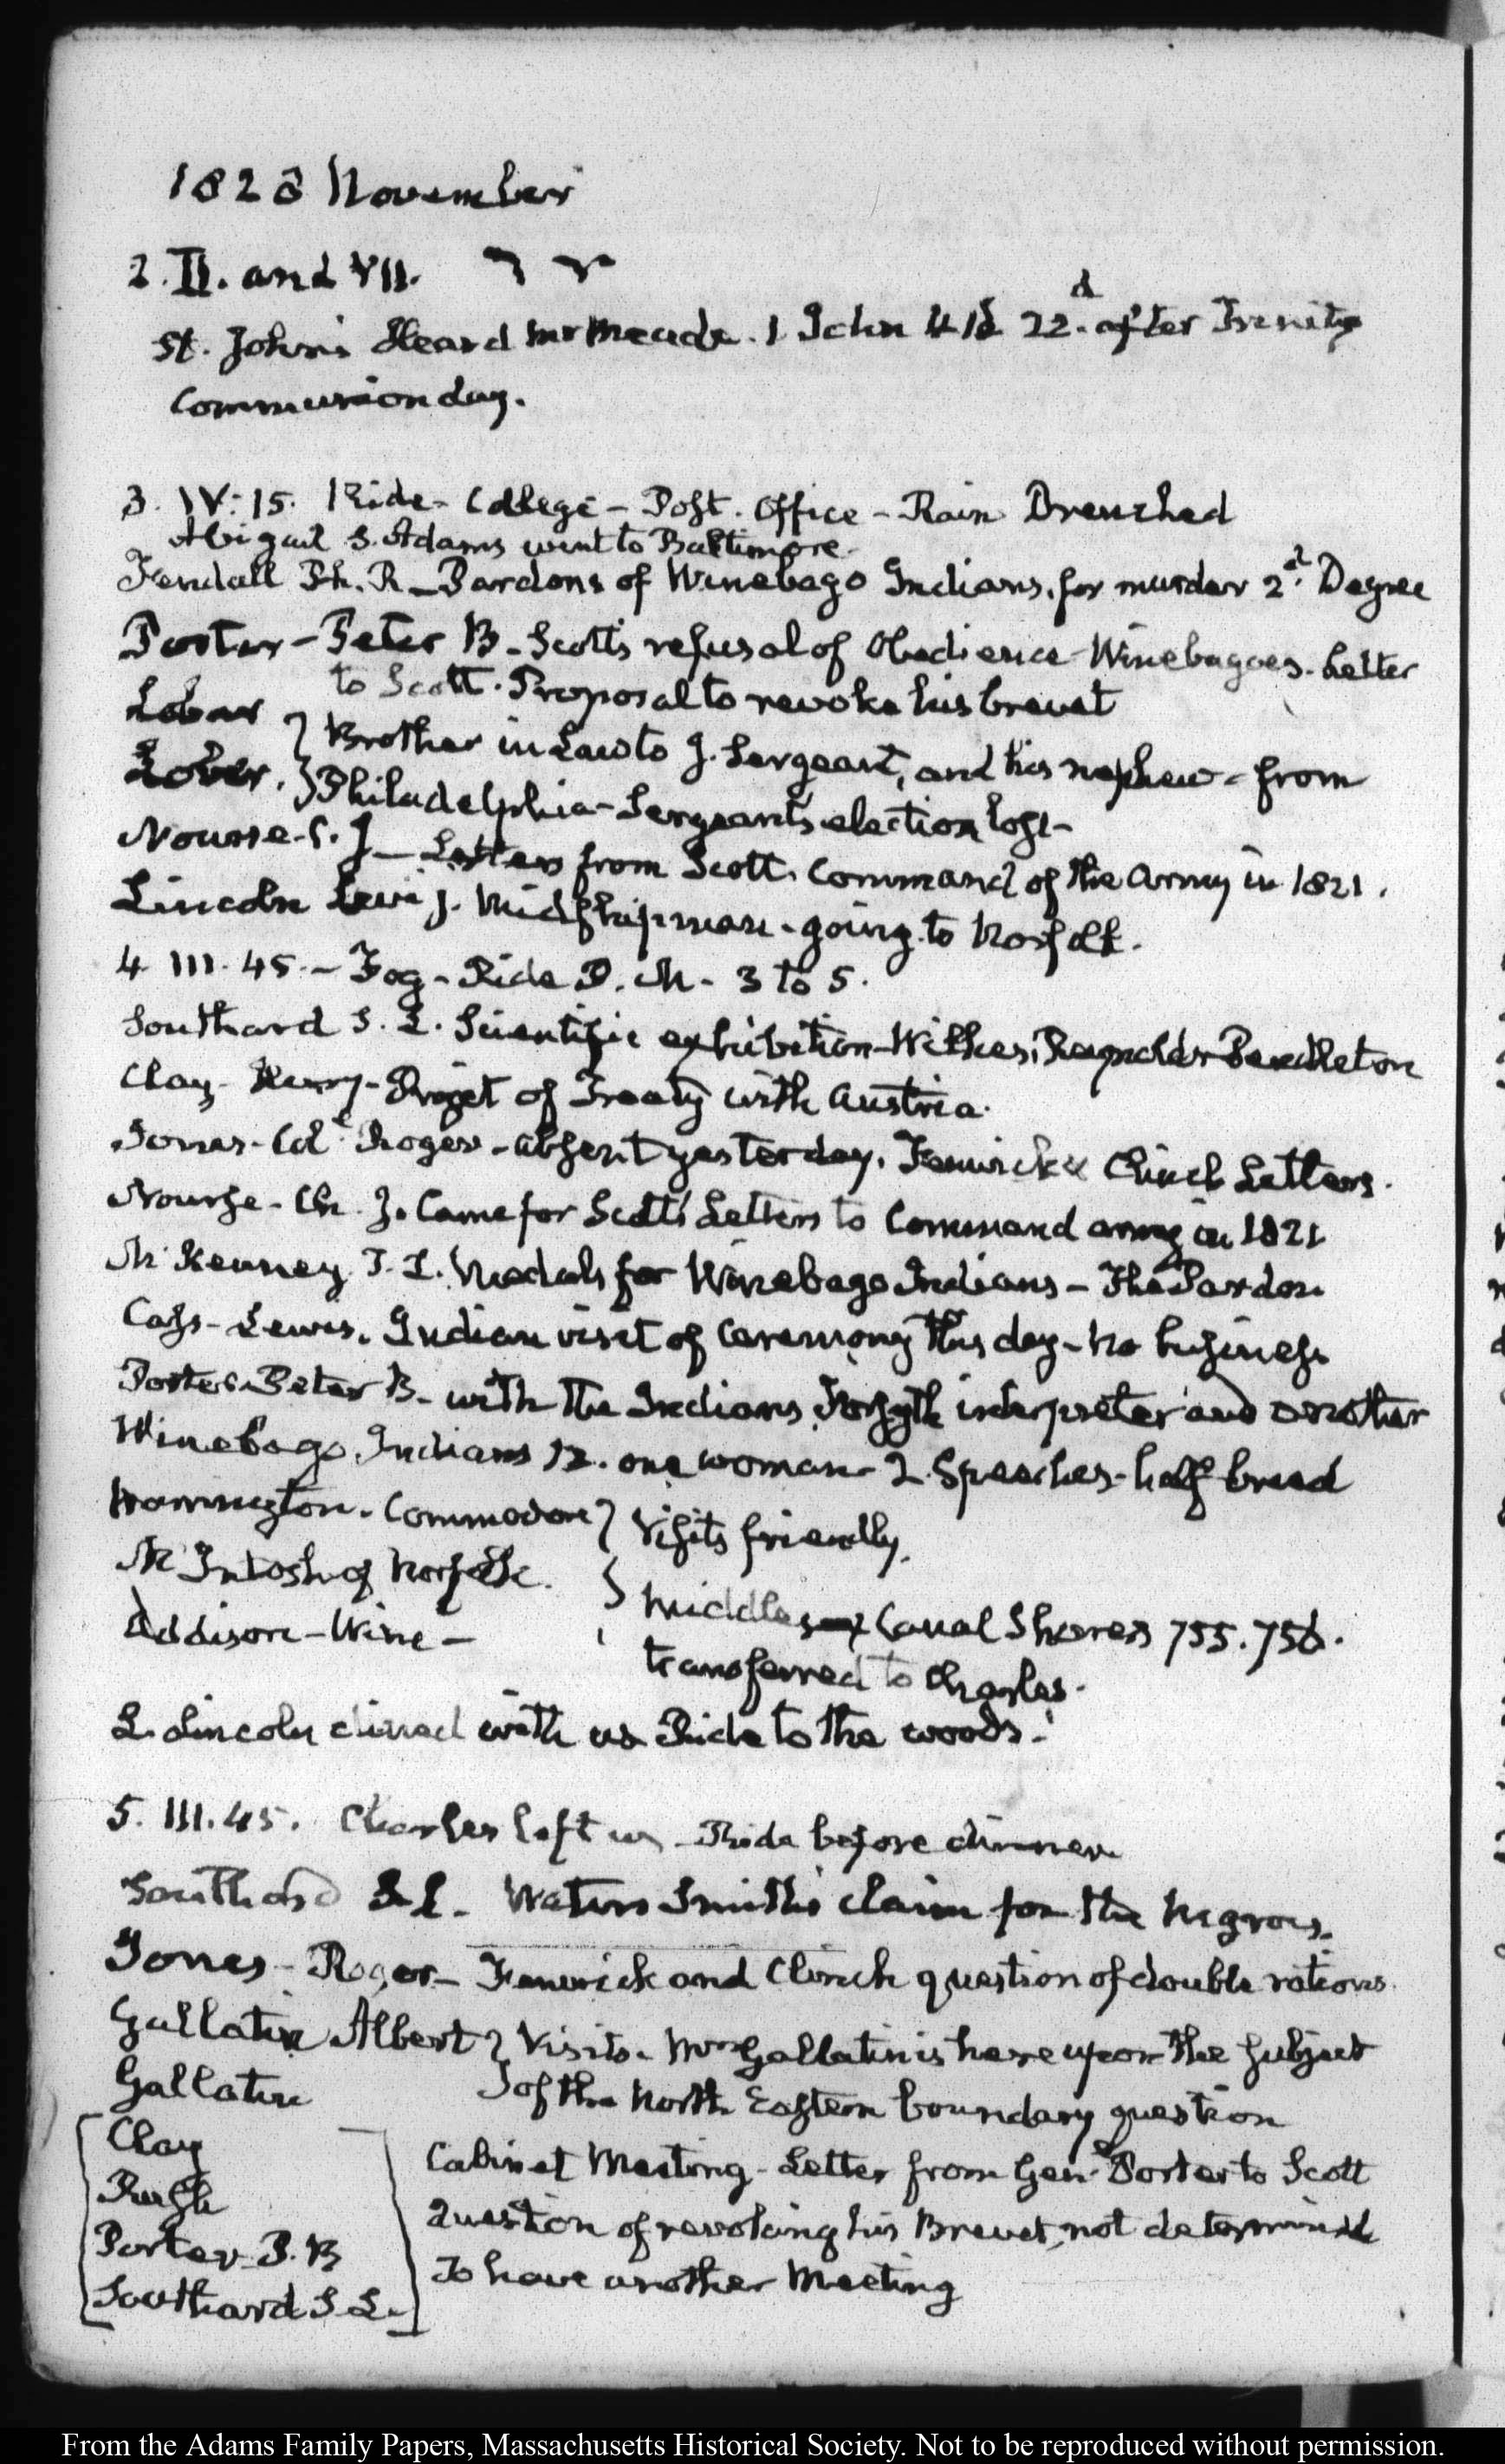 1828 November
2. II. and VII.
St. John's Heard Mr Meade. 1 John 4 18 22.d after Trinity
Communion day.
3. IV: 15. Ride - College - Post. Office - Rain Drenched
Abigail S. Adams went to Baltimore.
Fendall Ph. R - Pardons of Winebago Indians, for murder 2.d Degree
Porter - Peter B - Scott's refusal of Obedience - Winebagoes. Letter
to Scott. Proposal to revoke his brevet
Brother in Law to J. Sergeant, and his nephew - from
Philadelphia - Sergeant's election lost -
Nourse C. J - Letters from Scott. Command of the Army in 1821.
Lincoln Levi j. Midshipman - going to Norfolk.
4 III. 45 - Fog - Ride P. M - 3 to 5.
Southard S. L. Scientific exhibition - Wilkes, Reynolds Pendleton
Clay - Henry - Projet of Treaty with Austria.
Jones - Coll Roger - absent yesterday. Fenwick & Clinch Letters.
Nourse - Ch. J. Came for Scott's Letters to Command army in 1821
McKenney T. L. Medals for Winebago Indians - The Pardon
Cass - Lewis. Indian visit of Ceremony this day - No business
Porter Peter B - with the Indians Forsyth interpreter and another
Winebago Indians 12. one woman - 2 Speeches - half breed
Warrington. Commodore } Visits friendly.
McIntosh of Norfolk.
Addison - Wine -
Middlesex Canal Shares 755. 756.
transferred to Charles.
L. Lincoln dined with us Ride to the woods.
5. III. 45. Charles left us - Ride before dinner
Southard S. L - Waters Smith's claim for the Negroes.
Jones - Roger - Fenwick and Clinch question of double rations
Gallatin Albert } Visits. Mr Gallatin is here upon the subject
Gallatin } of the North Eastern boundary question
Clay
Rush
Porter P. B
Southard S. L.
Cabinet Meeting - Letter from Genl Porter to Scott
Question of revoking his Brevet, not determined
To have another Meeting
From the Adams Family Papers, Massachusetts Historical Society. Not to be reproduced without permission.